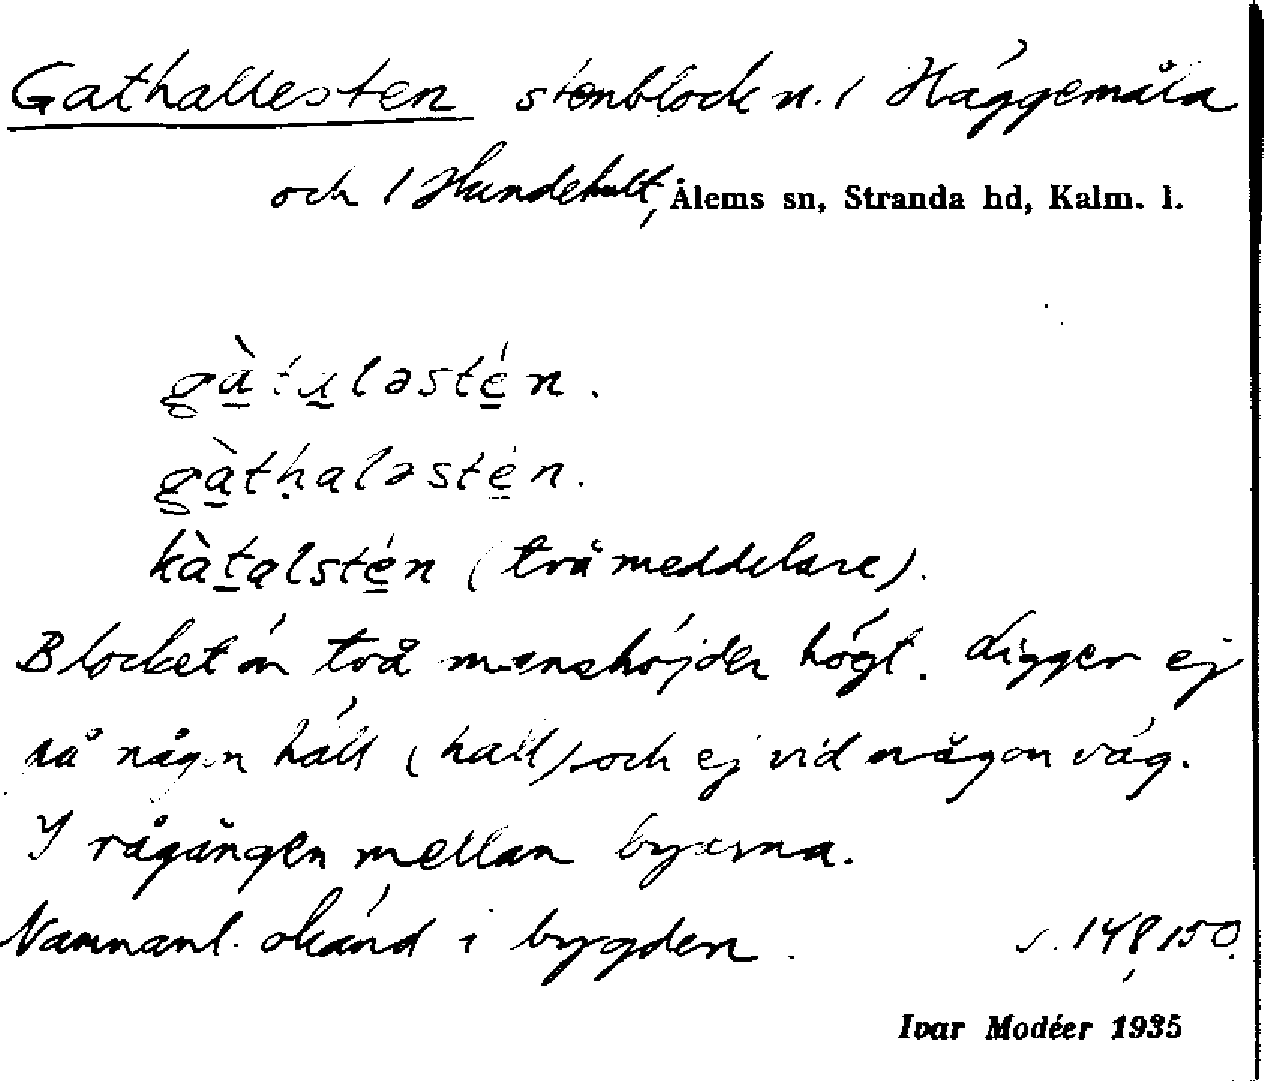 Gathallesten stenblock n. / Häggemåla
och / Hundeholt, Ålems sn, Stranda hd, Kalm. l.
gàtu̱ləstén.
gàtḥaləstén.
kàtalstén (två meddelare).
Blocket är två manshöjder högt. Ligger ej
på någon häll (hall) och ej vid någon väg.
I rågången mellan byarna.
Namnanl. okänd i bygden. s. 148, 150.
Ivar Modéer 1935